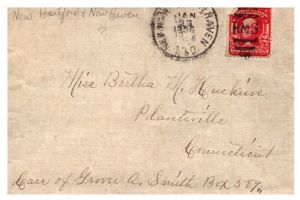 New Hartford & New Haven
JAN
23
1906
R.M.S
Miss Bertha M. Huckins
Plantsville
Connecticut
Care of Grove A. Smith Box 509